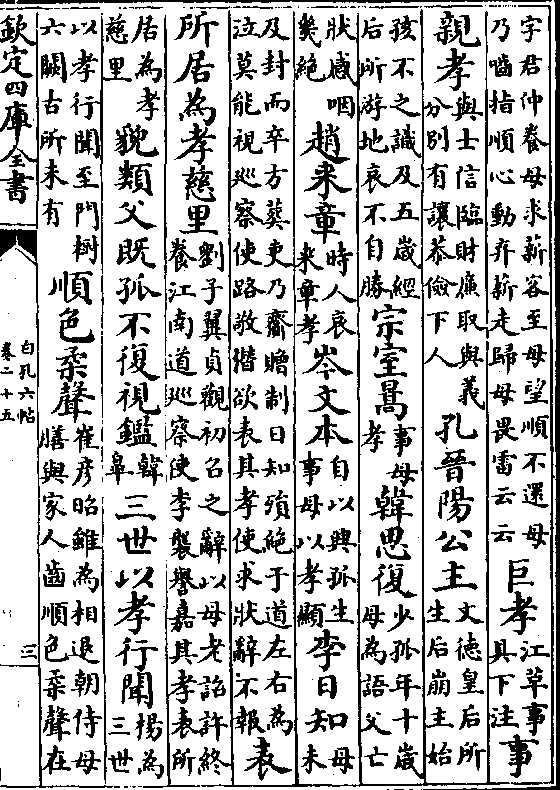 字君仲養母求薪客至母望順不還母乃嚙指順心動弃薪走歸母畏雷云云巨孝江革事具下注事
親孝與士信臨財廉取與義分別有讓恭儉下人孔晉陽公主文德皇后所生后崩主始
孩不之識及五歲經后所游地哀不自勝宗室暠事母孝韓思復少孤年十歲母為語父亡
狀感咽幾絶趙来章時人哀来章孝岑文本自以興孤生事母以孝顯李日知母未
及封而卒方葬吏乃齎贈制曰知殞絶于道左右為泣莫能視巡察使路敬潜欲表其孝使求狀辭不報表
所居為孝慈里劉子翼貞觀初召之辭以母老詔許終養江南道巡察使李襲譽嘉其孝表所
居為孝慈里貌類父既孤不復視鑑韓臯三世以孝行聞楊為三世
以孝行聞至門樹六闕古所未有順色柔聲崔彦昭雖為相退朝侍母膳與家人齒順色柔聲在
欽定四庫全書
白孔六帖
卷二十五
三